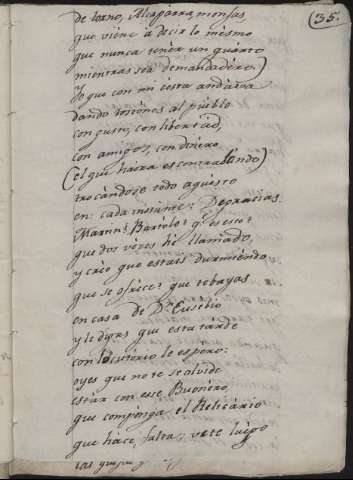 35.
de torno, Alcaparra, monjas,
que viene a decir lo mesmo
que nunca tener un quarto
mientras sea demandadero.)
Yo que con mi cesta andava
dando tosiones al pueblo
con gusto, con libertad,
con amigos, con dinero
(el que haora es contrabando)
trocandose todo aquesto
en: cada instante: Deogracias:
Martin? Bartolo? q.e es esto?
que dos véces hé llamado,
y creo que estais durmiendo.
que se ofrece? que te bayas
en casa de D.n Eusebio
y le digas que esta tarde
con locutorio le espero:
oyes que no te se olvide
estár con ese Buonéro,
que componga el Relicário
que hace falta: vete luego
las